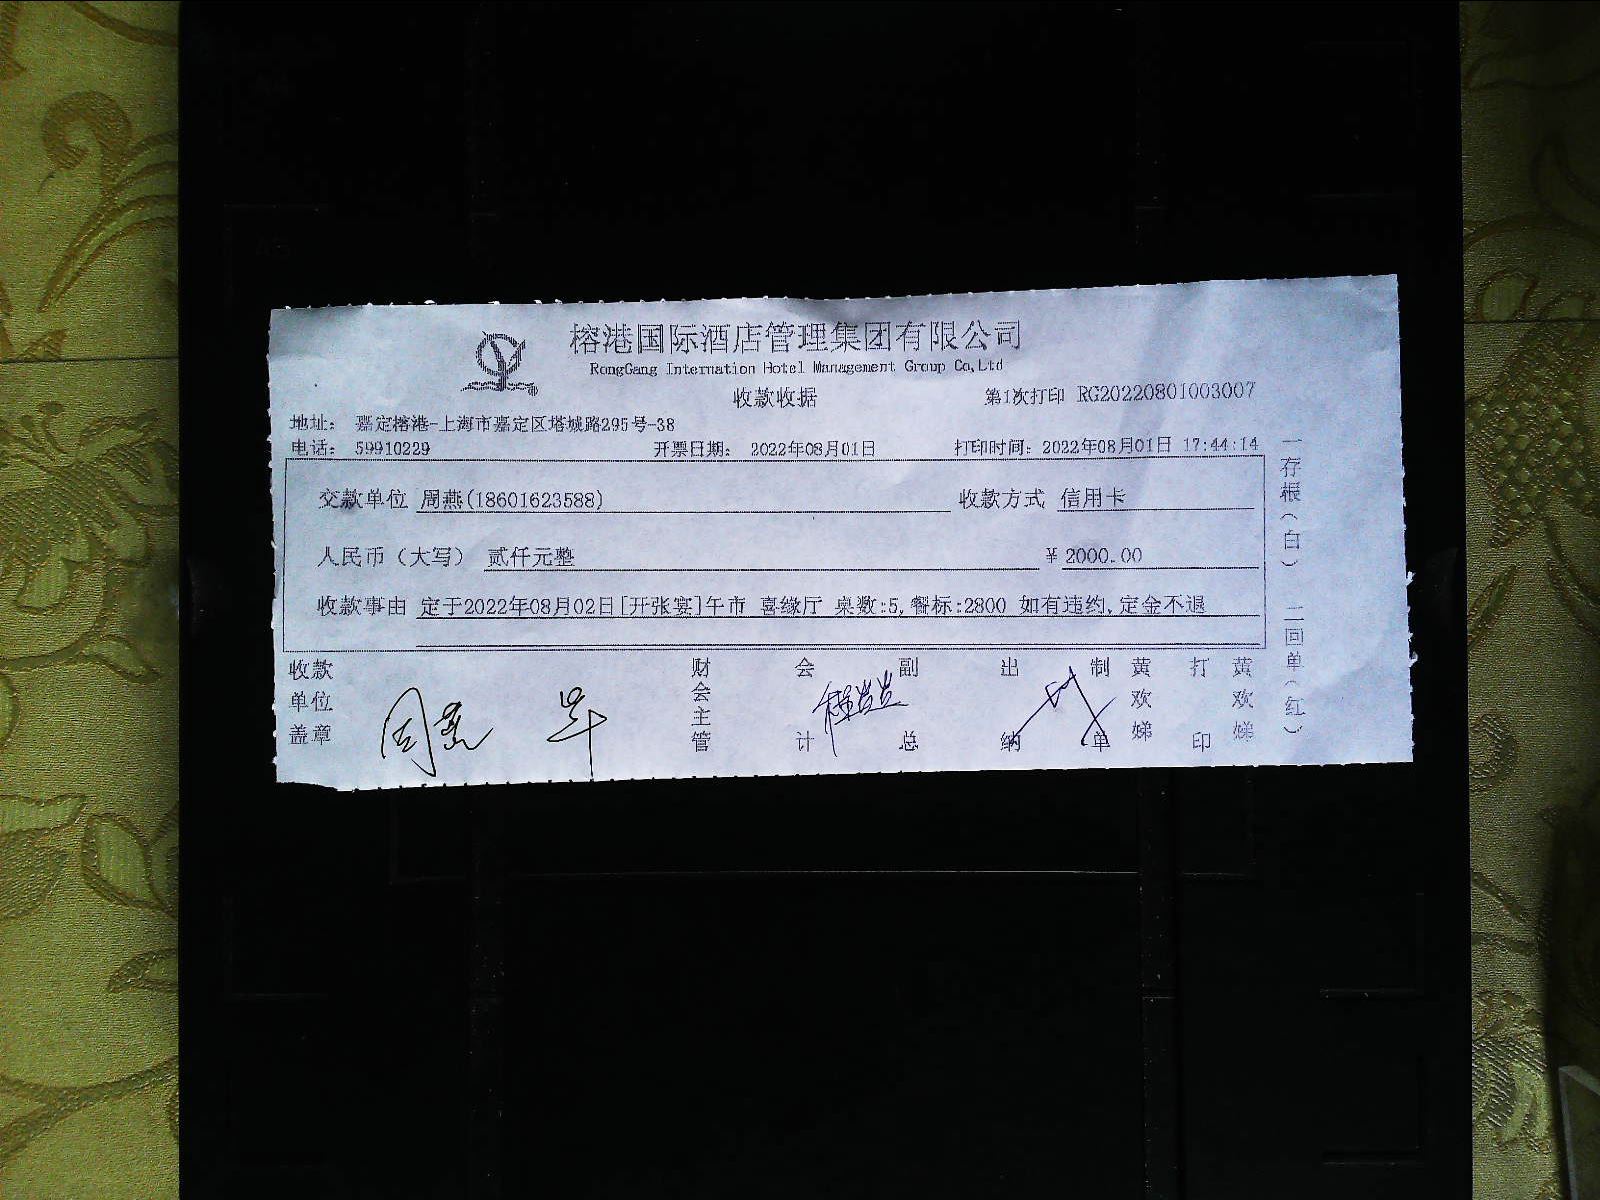 榕港国际酒店管理集团有限公司
RongGang Internation Hotel Management Group Co,Ltd
收款收据
第1次打印 RG20220801003007
地址： 嘉定榕港-上海市嘉定区塔城路295号-38
电话： 59910229 开票日期： 2022年08月01日 打印时间：2022年08月01日 17:44:14
交款单位 周燕(18601623588) 收款方式 信用卡
人民币（大写） 贰仟元整 ￥2000.00
收款事由 定于2022年08月02日[开张宴]午市 喜缘厅 桌数:5,餐标:2800 如有违约,定金不退
收款单位盖章 周燕 财会主管 会计 副总 出纳 制单 黄欢娣 打印 黄欢娣
一存根(白) 二回单(红)